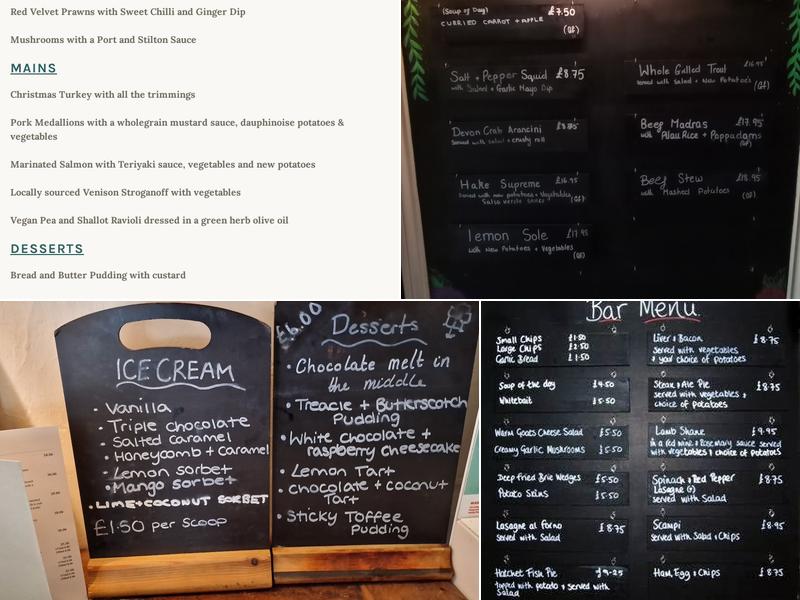 Red Velvet Prawns with Sweet Chilli and Ginger Dip
Mushrooms with a Port and Stilton Sauce
MAINS
Christmas Turkey with all the trimmings
Pork Medallions with a wholegrain mustard sauce, dauphinoise potatoes &
vegetables
Marinated Salmon with Teriyaki sauce, vegetables and new potatoes
Locally sourced Venison Stroganoff with vegetables
Vegan Pea and Shallot Ravioli dressed in a green herb olive oil
DESSERTS
Bread and Butter Pudding with custard
(Soup of Day) £7.50
CURRIED CARROT + APPLE
(GF)
Salt + Pepper Squid £8.75
with Salad + Garlic Mayo Dip
Devon Crab Arancini
Served with salad + crusty roll
Hake Supreme £16.95
Served with new potatoes + Vegetables
Salsa verde sauce (GF)
Lemon Sole £17.95
with New Potatoes + Vegetables
(GF)
Whole Grilled Trout £16.95
served with Salad + New Potatoes
(GF)
Beef Madras £17.95
with Pilau Rice + Poppadoms
(GF)
Beef Stew £18.95
with Mashed Potatoes
(GF)
ICE CREAM
• Vanilla
• Triple chocolate
• Salted caramel
• Honeycomb + Caramel
• Lemon sorbet
• Mango sorbet
• LIME + COCONUT SORBET
£1.50 per Scoop
£6.00
Desserts
• Chocolate melt in
the middle
• Treacle + Butterscotch
Pudding
• White chocolate +
raspberry cheesecake
• Lemon Tart
• chocolate + coconut
Tart
• Sticky Toffee
Pudding
Bar Menu
Small Chips £1.50
Large Chips £2.50
Garlic Bread £1.50
Soup of the day £4.50
Whitebait £5.50
Warm Goats Cheese Salad £5.50
Creamy Garlic Mushrooms £5.50
Deep Fried Brie Wedges £5.50
Potato Skins £5.50
Lasagne al forno £8.75
served with Salad
Hatchet Fish Pie £9.25
topped with potato & served with
Salad
Liver & Bacon £8.75
served with vegetables
& your choice of potatoes
Steak & Ale Pie £8.75
served with vegetables &
choice of potatoes
Lamb Shank £9.95
in a red wine & Rosemary sauce served
with vegetables & choice of potatoes
Spinach & Red Pepper £8.75
Lasagne (v)
served with Salad
Scampi £8.95
served with Salad & Chips
Ham, Egg & Chips £8.75